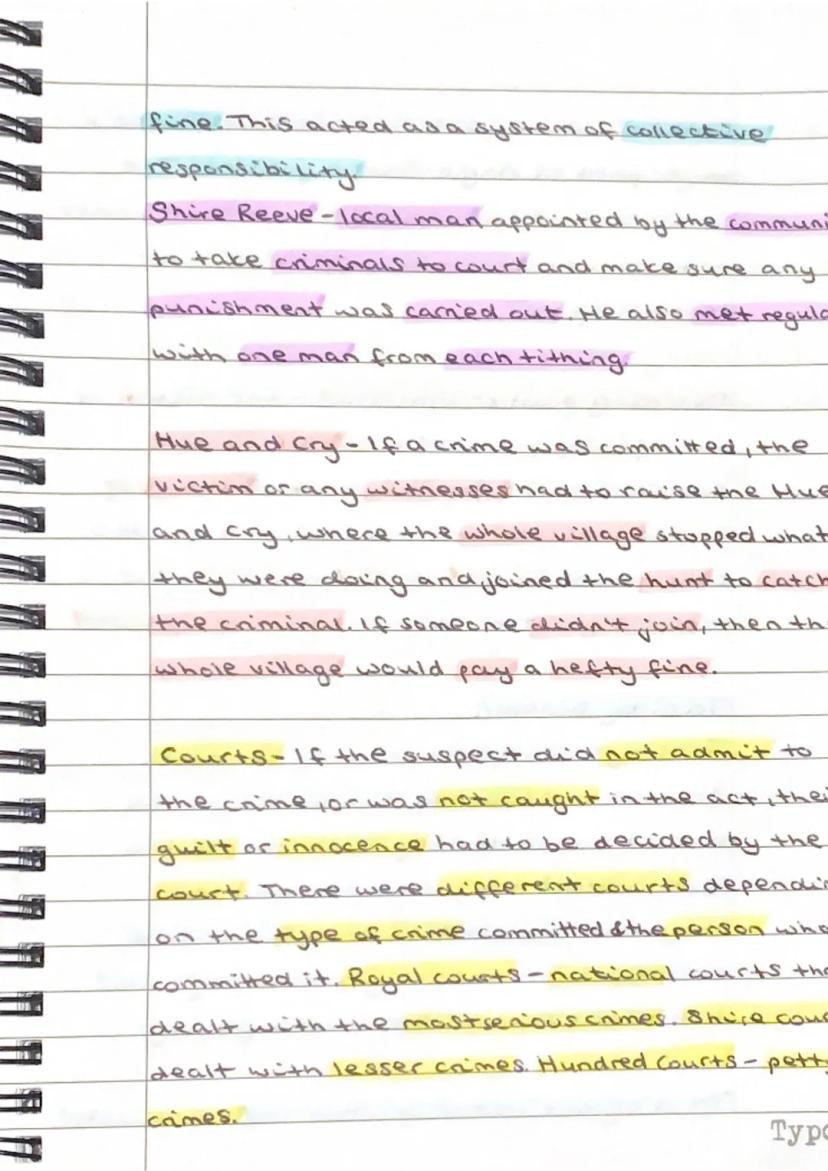 fine. This acted as a system of collective
responsibility.
Shire Reeve - local man appointed by the communi
to take criminals to court and make sure any
punishment was carried out. He also met regula
with one man from each tithing.
Hue and Cry - If a crime was committed, the
victim or any witnesses had to raise the Hue
and cry, where the whole village stopped what
they were doing and joined the hunt to catch
the criminal. If someone didn't join, then th
whole village would pay a hefty fine.
Courts - If the suspect did not admit to
the crime, or was not caught in the act, thei
guilt or innocence had to be decided by the
court. There were different courts dependi
on the type of crime committed & the person who
committed it. Royal courts - national courts tha
dealt with the most serious crimes. Shire cour
dealt with lesser crimes. Hundred Courts - petty
crimes.
Typo